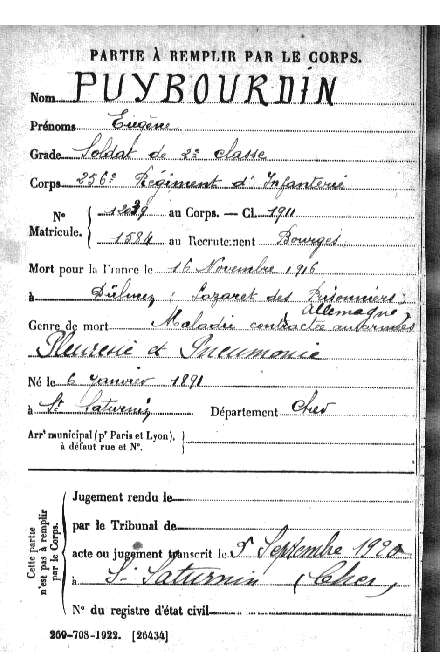 PARTIE À REMPLIR PAR LE CORPS.
Nom PUYBOURDIN
Prénoms Eugène
Grade Soldat de 2e classe
Corps 256e Régiment d'Infanterie
N° Matricule. 1239 au Corps. — Cl. 1911
1584 au Recrutement Bourges
Mort pour la France le 16 Novembre 1916
à Dülmen ; Lazaret des Prisonniers,
Allemagne
Genre de mort Maladie contractée aux armées
Pleurésie et Pneumonie
Né le 6 Janvier 1891
à St Saturnin Département Cher
Arrt municipal (pr Paris et Lyon),
à défaut rue et N°.
Cette partie
n'est pas à remplir
par le Corps.
Jugement rendu le
par le Tribunal de
acte ou jugement transcrit le 9 Septembre 1920
à St Saturnin (Cher)
N° du registre d'état civil
269-708-1922. [26434]